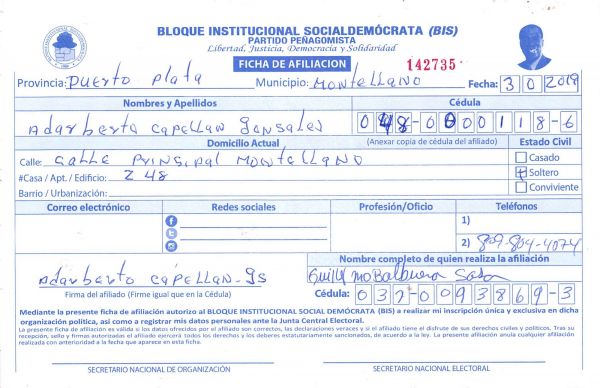 BLOQUE INSTITUCIONAL SOCIALDEMÓCRATA (BIS)
PARTIDO PEÑAGOMISTA
Libertad, Justicia, Democracia y Solidaridad
FICHA DE AFILIACION 142735
Provincia: Puerto Plata Municipio: Montellano Fecha: 30 2019
Nombres y Apellidos Cédula
Adarberto Capellan Gonsales 048-0000118-6
Domicilio Actual (Anexar copia de cédula del afiliado) Estado Civil
Calle: Calle Prinsipal Montellano Casado
#Casa / Apt. / Edificio: Z 48 Soltero
Barrio / Urbanización: Conviviente
Correo electrónico Redes sociales Profesión/Oficio Teléfonos
1)
2) 809-804-4074
Nombre completo de quien realiza la afiliación
Adarberto Capellan-Gs Balbuena Sosa
Firma del afiliado (Firme igual que en la Cédula) Cédula: 037-0093869-3
Mediante la presente ficha de afiliación autorizo al BLOQUE INSTITUCIONAL SOCIAL DEMÓCRATA (BIS) a realizar mi inscripción única y exclusiva en dicha
organización política, así como a registrar mis datos personales ante la Junta Central Electoral.
La presente ficha de afiliación es válida si los datos ofrecidos por el afiliado son correctos, las declaraciones veraces y si el afiliado tiene el disfrute de sus derechos civiles y políticos. Tras su
recepción, sello y firmas autorizadas el afiliado ejercerá todos los derechos y los deberes estatutariamente sancionados, de acuerdo a la ley. La presente afiliación anula cualquier afiliación
realizada con anterioridad a la fecha que aparece en esta ficha.
SECRETARIO NACIONAL DE ORGANIZACIÓN SECRETARIO NACIONAL ELECTORAL